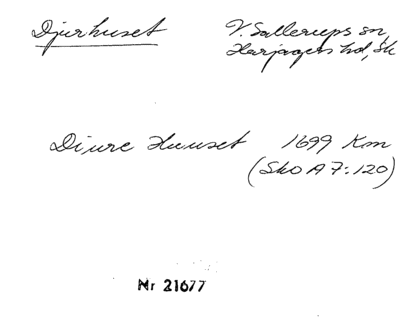 Djurhuset
V. Sallerups sn,
Harjagers hd, Sk
Diure Huuset 1699 Km
(Sko A 7:120)
Nr 21677